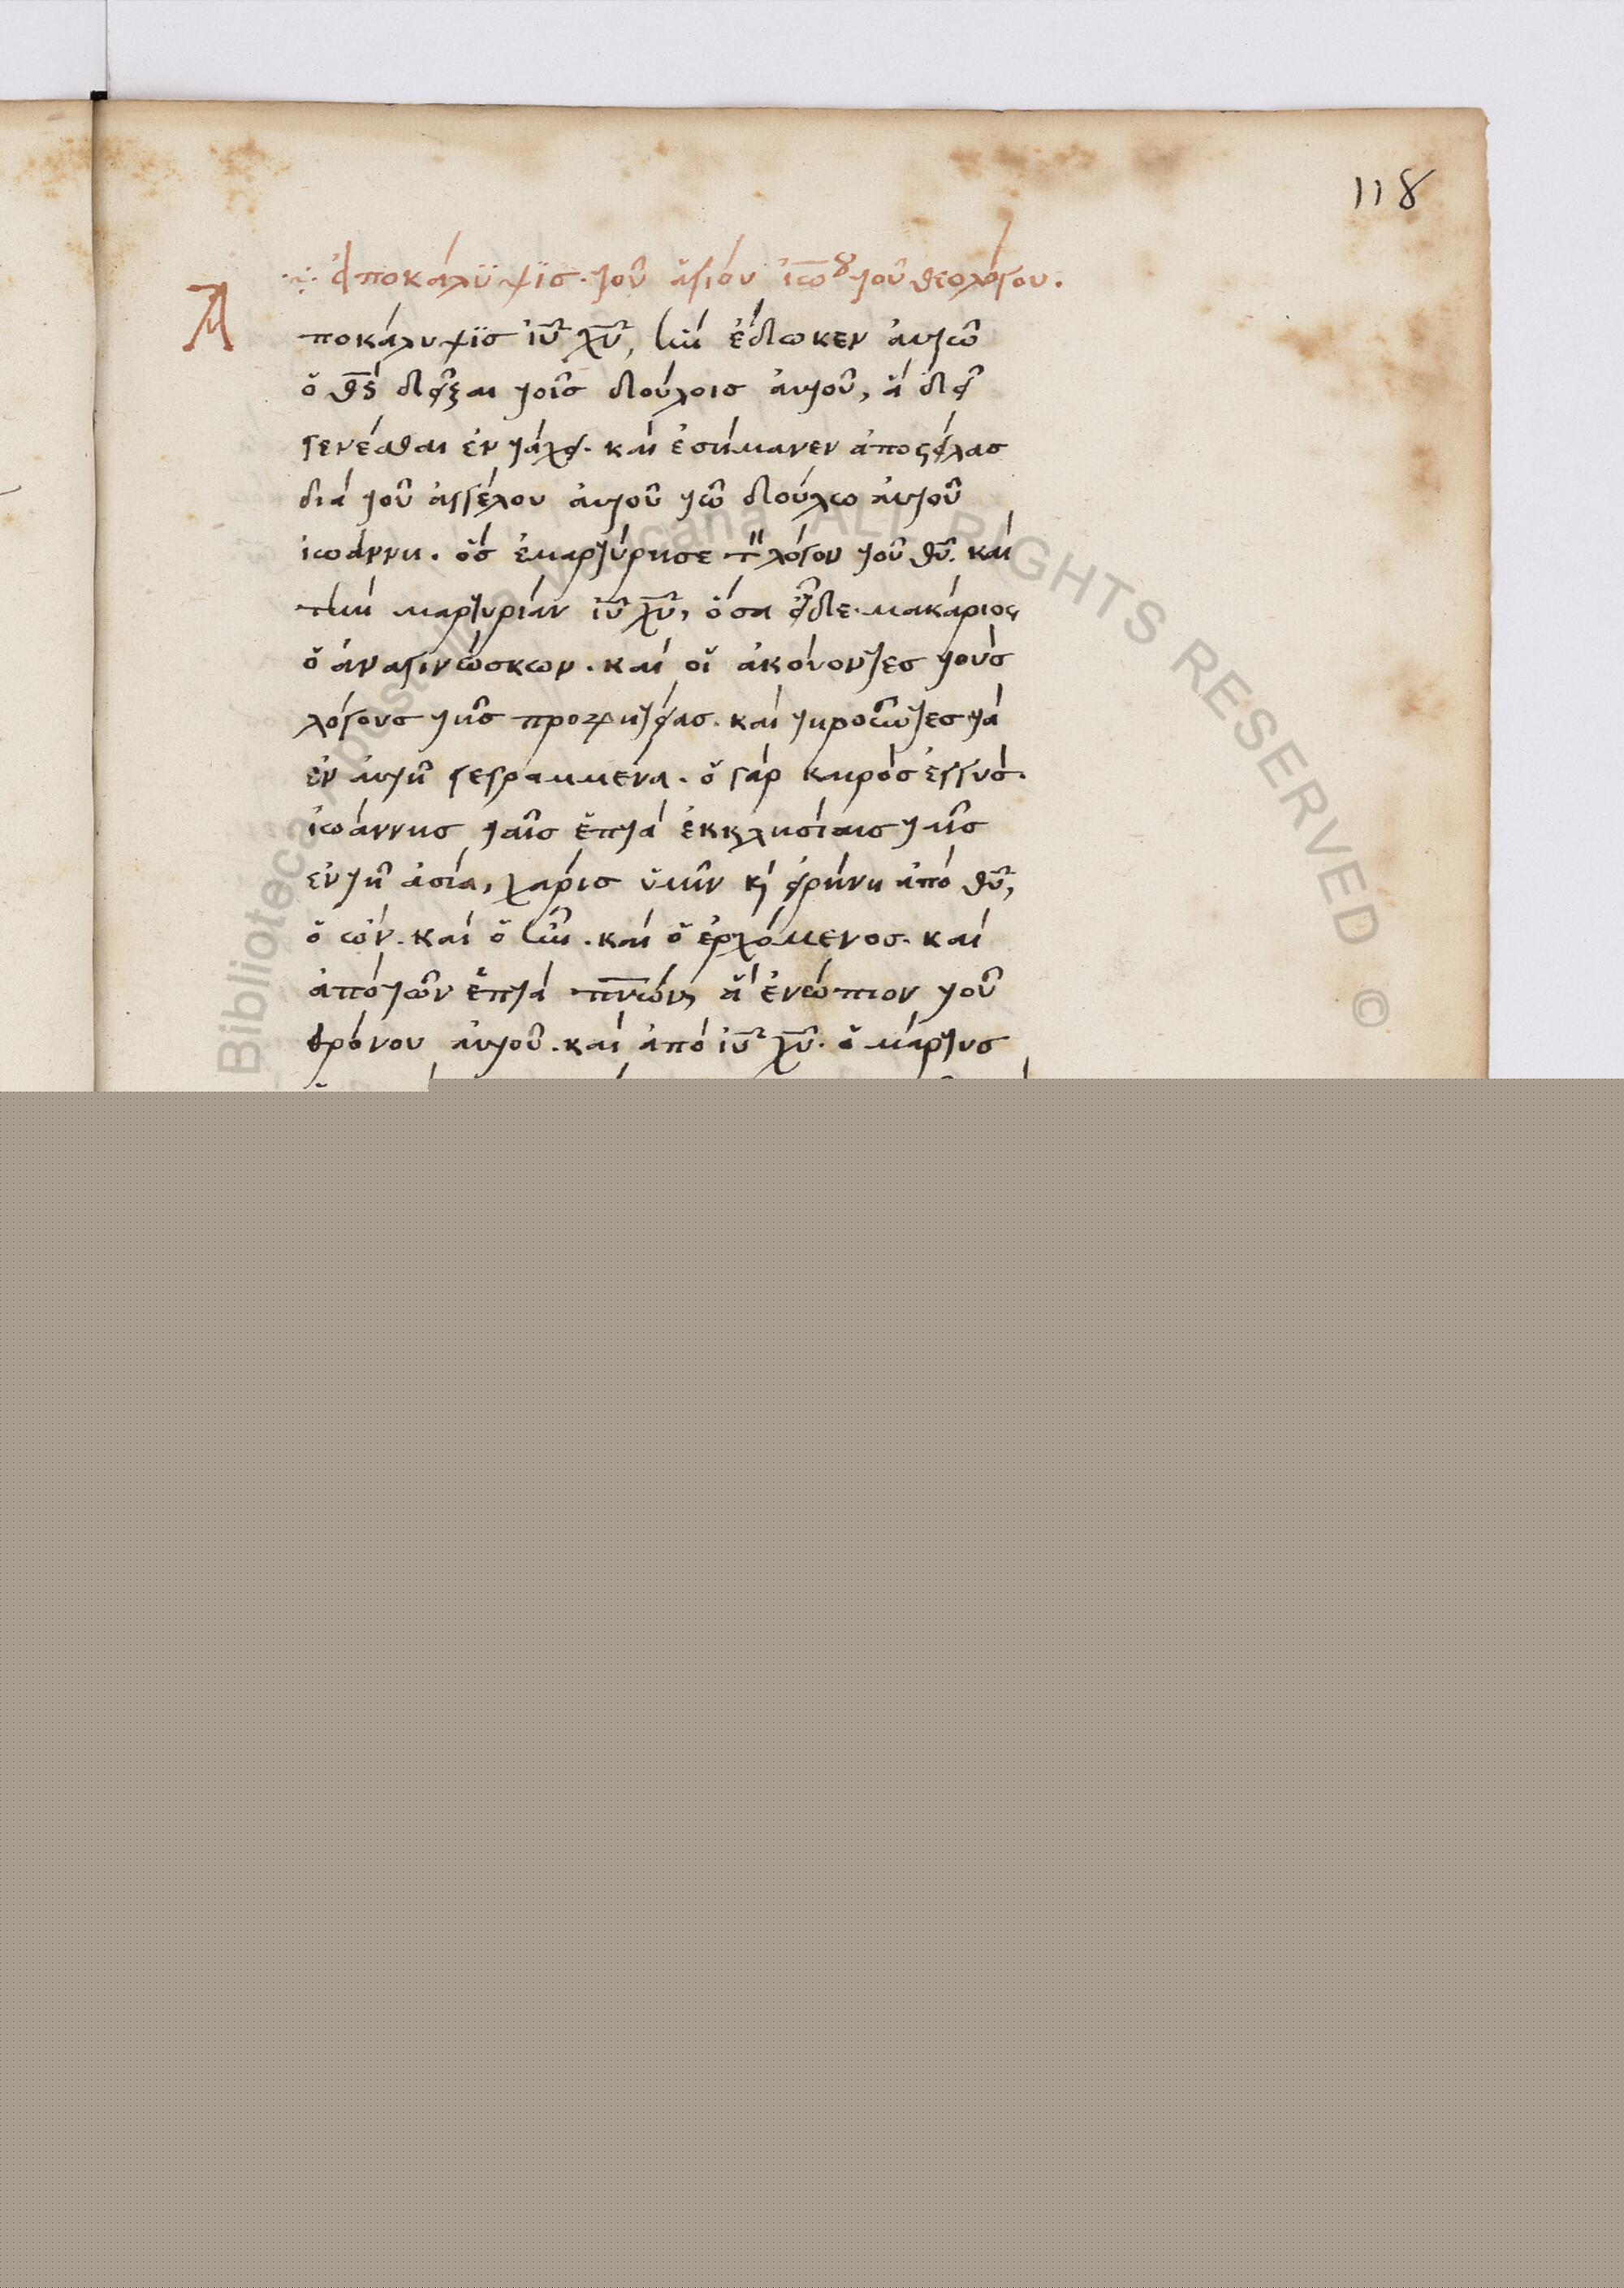 118
ἀποκάλϋψϊς. τοῦ ἁγίου ἰω̅ου τοῦ θεολόγου.
Αποκάλυψϊς ἰυ̅ χυ̅, ἣν ἔδωκεν ἀυτῶ
ὁ θς̅ δεῖξαι τοῖς δούλοις ἀυτοῦ, ἃ δεῖ
γενέσθαι ἐν τάχει. καὶ ἐσήμανεν ἀποστείλας
διὰ τοῦ ἀγγέλου ἀυτοῦ τῶ δούλω ἀυτοῦ
ἰωάννη. ὃς ἐμαρτύρησε τὸν λόγον τοῦ θυ̅. καὶ
τὴν μαρτυρίαν ἰυ̅ χυ̅, ὅσα εἶδε. μακάριος
ὁ ἀναγινώσκων. καὶ οἱ ἀκούοντες τοὺς
λόγους τῆς προφητείας. καὶ τηροῦντες τὰ
ἐν ἀυτῆ γεγραμμένα. ὁ γὰρ καιρὸς ἐγγυς.
ἰωάννης ταῖς ἑπτὰ ἐκκλησίαις τῆς
ἐν τῆ ἀσία, χάρις ὑμῖν κὶ εἰρήνη ἀπὸ θυ̅,
ὁ ὢν. καὶ ὁ ἦν. καὶ ὁ ἐρχόμενος. καὶ
ἀπὸ τῶν ἑπτὰ πνω̅ν, ἃ ἐνώπιον τοῦ
θρόνου ἀυτοῦ. καὶ ἀπὸ ἰυ̅ χυ̅. ὁ μάρτυς
Biblioteca Apostolica Vaticana ALL RIGHTS RESERVED ©